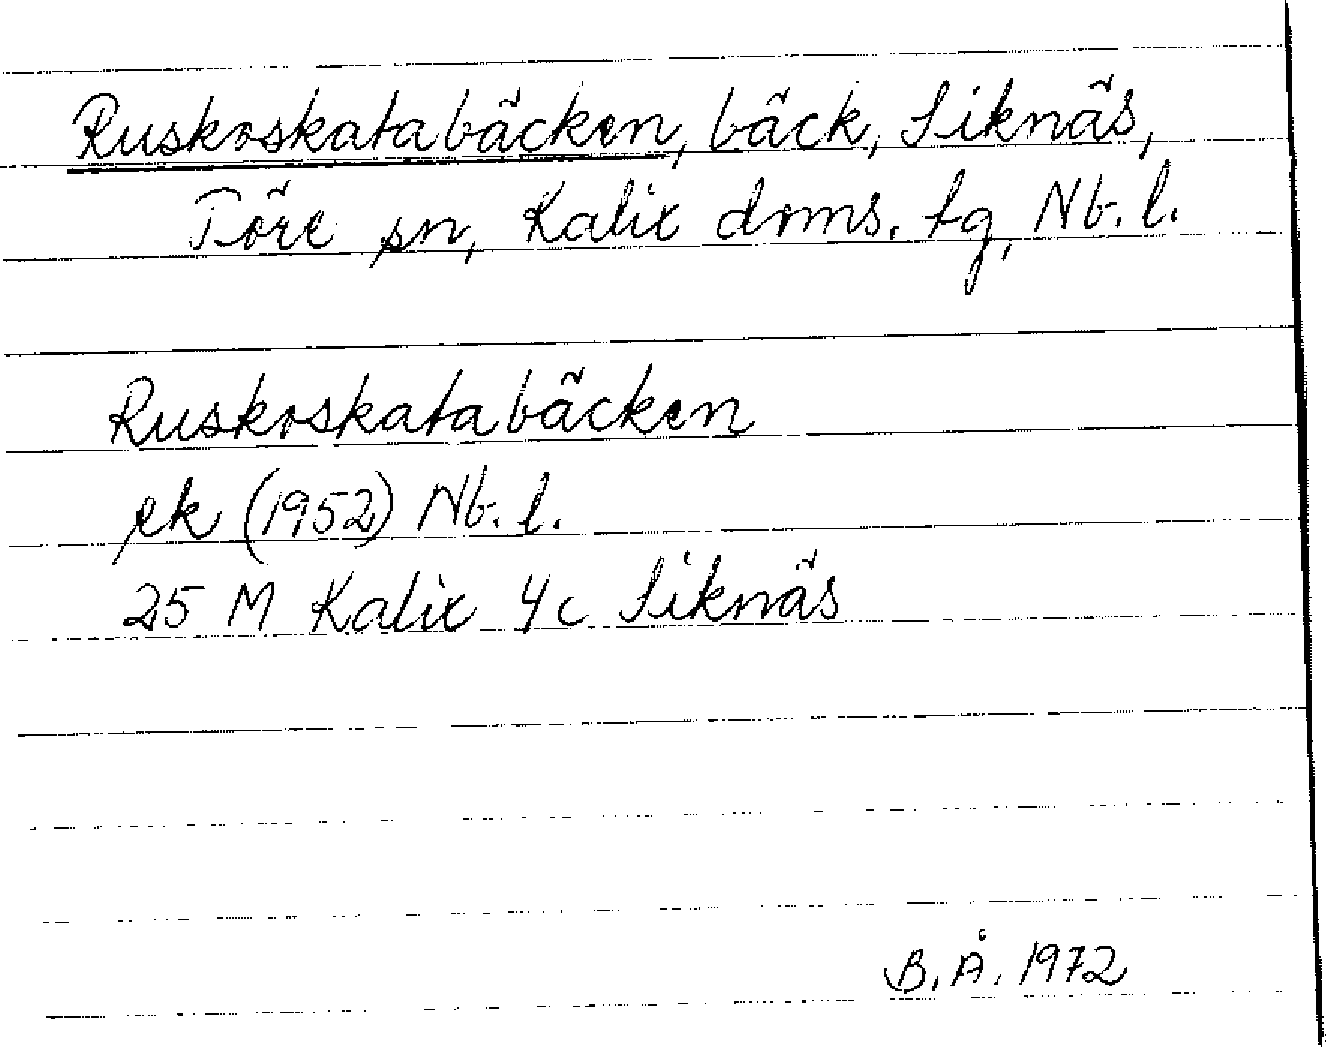 Ruskoskatabäcken, bäck, Siknäs,
Töre sn, Kalix dmns. tg, Nb. l.
Ruskoskatabäcken
ek (1952) Nb. l.
25 M Kalix 4c Siknäs
B. Å. 1972